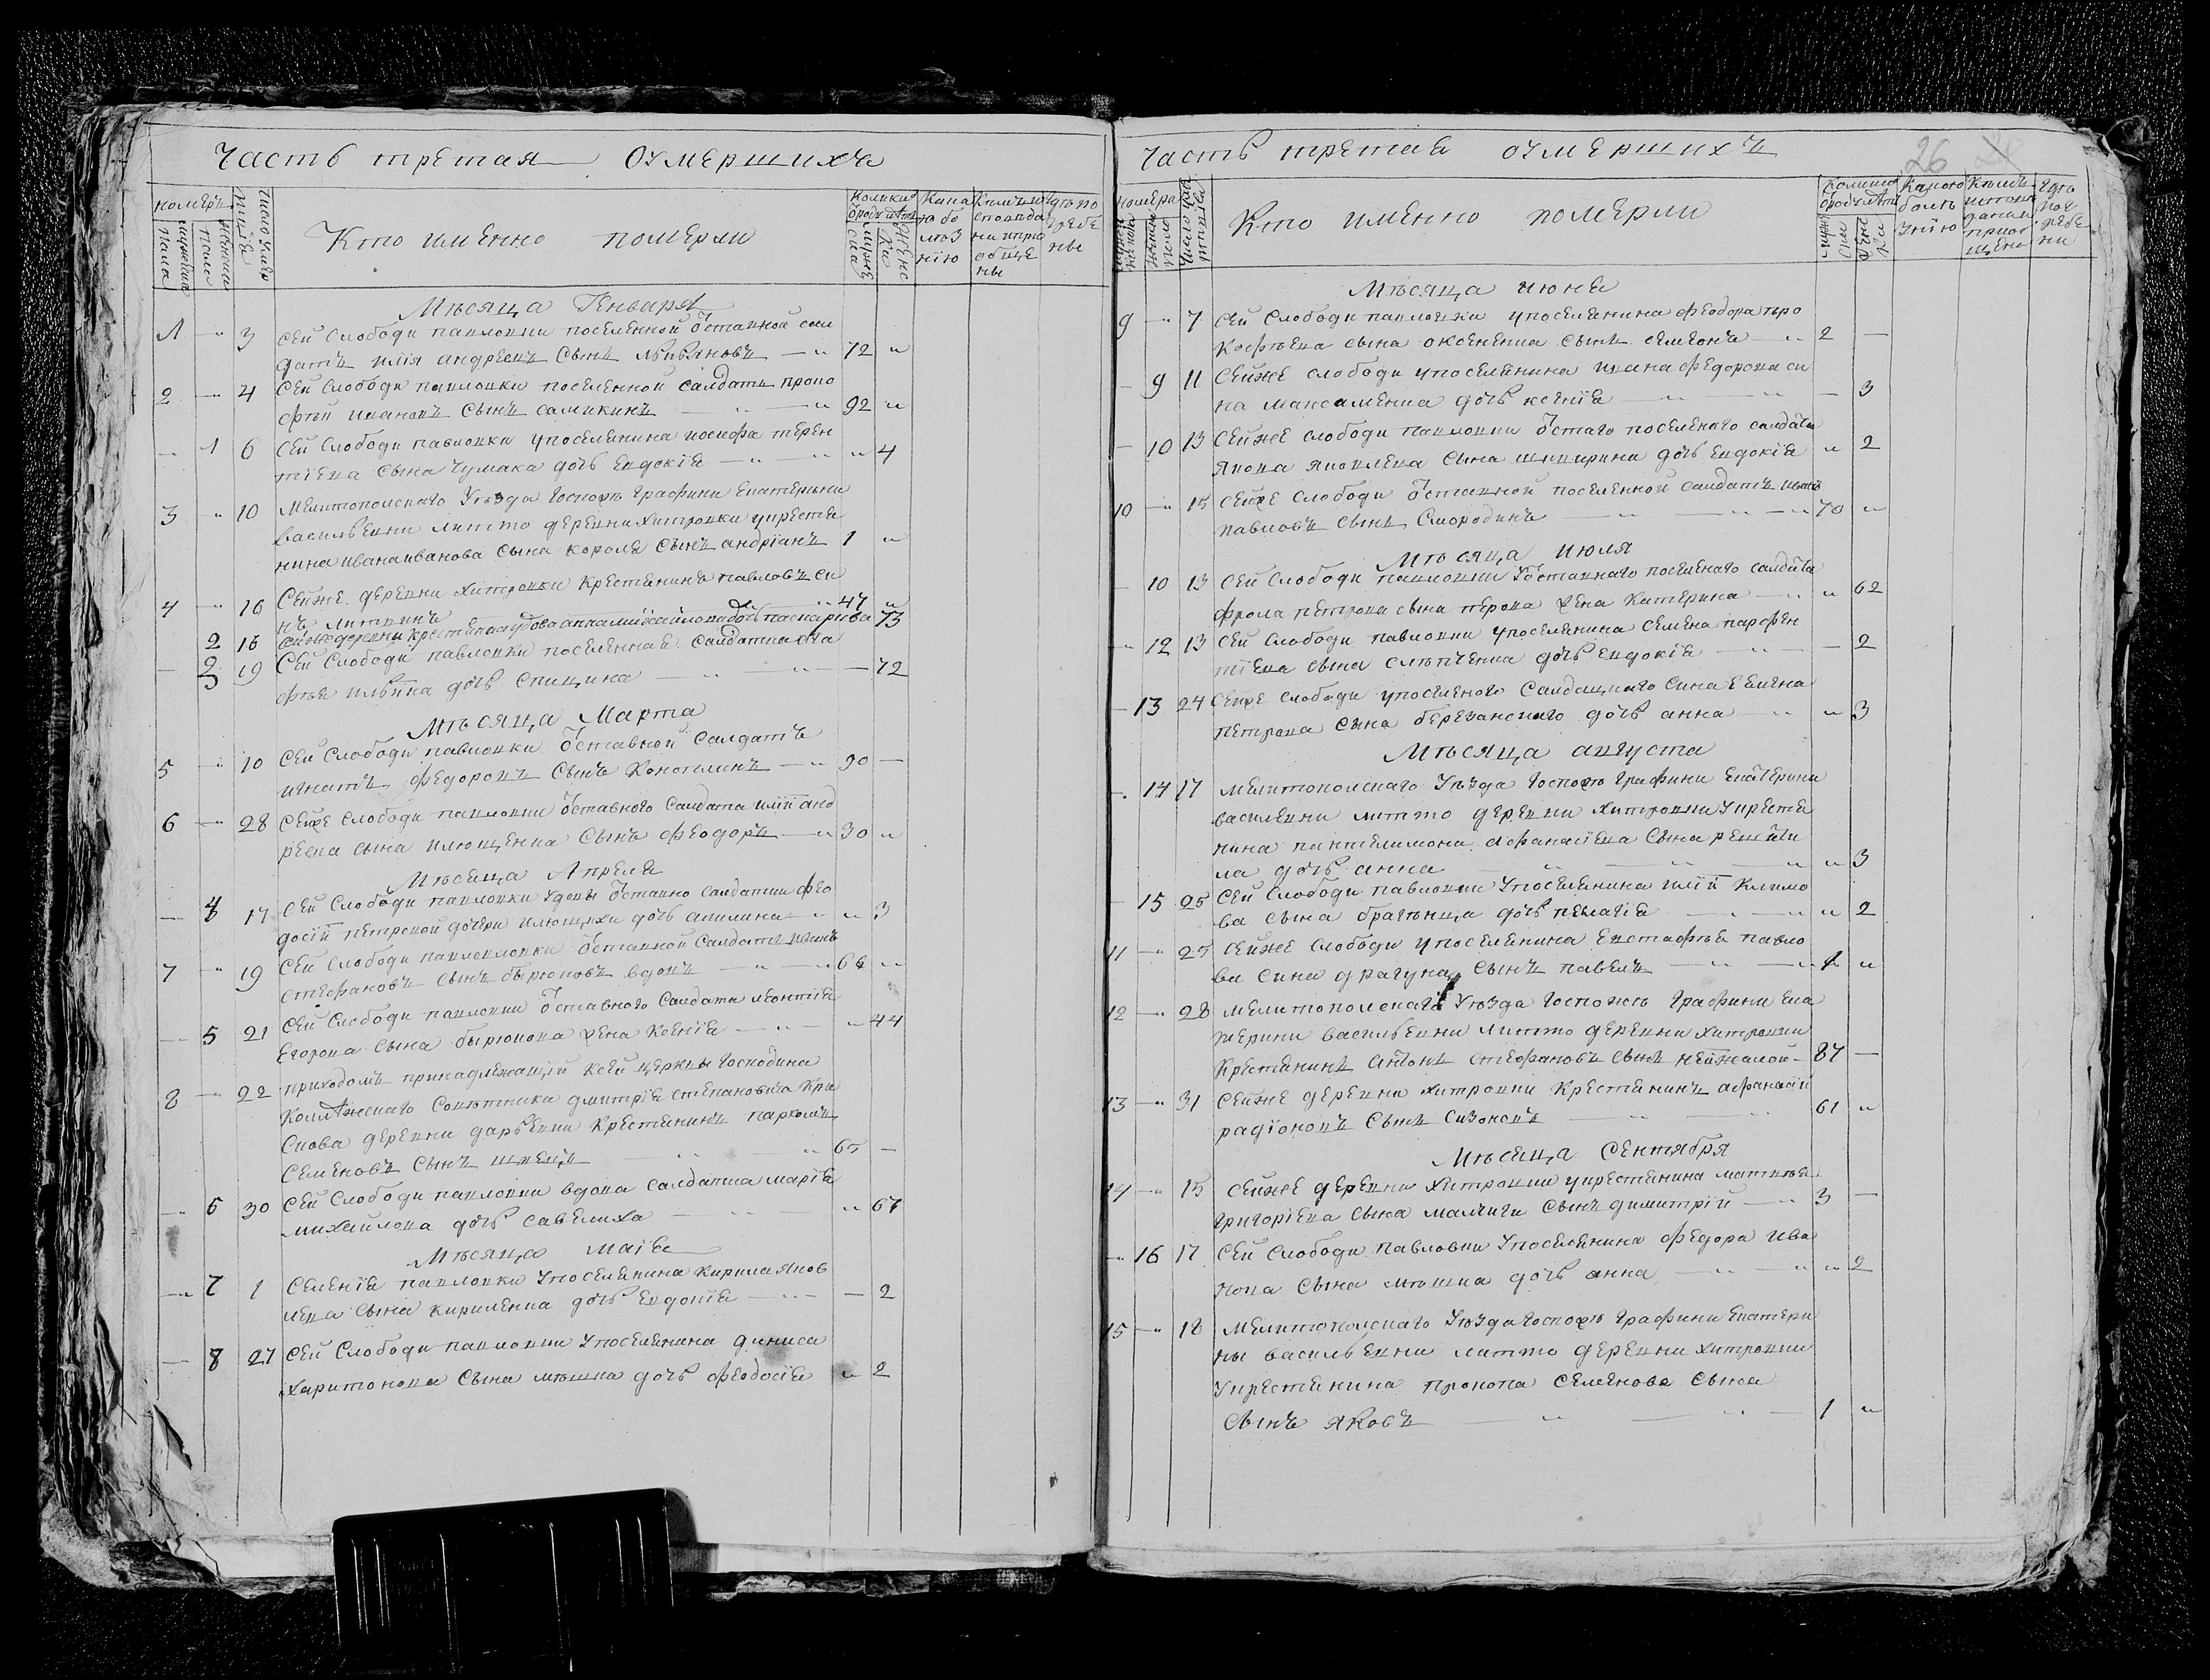 Часть третая оумершихъ
номеръ
мужеска пола
женска пола
Число
Кто именно померли
мужеска
женска
Мѣсяца Генваря
1 — 3 Сей Слободи павловки поселенной ѿставной сол
датъ илія андреевъ Сынъ — „ 72 „
2 — 4 Сей Слободи павловки поселенной салдатъ проко
фѣй ивановъ Сынъ саливинъ — „ — „ 92 „
— 1 6 Сей Слободи павловки упоселянина иосифа терен
тіева Сына Чумака дочь Евдокіа — „ — „ „ 4
3 „ 10 Мелитополскаго Уѣзда Госпожѣ Графини Екатерини
васильевни литто деревни хитровки укрестя
нина ивана иванова Сына короля Сынъ андріанъ 1 „
4 — 16 Сейже деревни Хитровки Крестянинъ павловъ си
нъ литвинъ „ 47 „
2 16 Сейже деревни вдова анна михайлова дочь 73
— 3 19 Сей Слободи павловки поселенная Салдатка ага
фѣя ильина дочь Спицина — „ — „ — 72
Мѣсяца Марта
5 — 10 Сей Слободи павловки ѿставной Салдатъ
игнатъ федоровъ Сынъ Коноплинъ — „ 90 —
6 — 28 Сейже Слободи павловки ѿставного Салдата иліи анд
реева сына илющенка Сынъ феодоръ — „ 30 „
Мѣсяца Апреля
— 4 17 Сей Слободи павловки Удови ѿставно салдатки фео
досіи петровой дочери илющихи дочь акилина — „ „ 3
7 „ 19 Сей Слободи ѿставной Салдатъ иванъ
Стефановъ Сынъ бырюковъ вдовъ — „ — „ 66 „
— 5 21 Сей Слободи павловки ѿставного Салдата леонтіа
Егорова Сына бырюкова жена Ксеніа — „ — „ 44
8 — 22 приходомъ принадлежащій ксей церкви Господина
Коллѣжскаго Совѣтника дмитріа степановича Кри
Скова деревни дарьевки Крестянинъ пархомъ
Семеновъ Сынъ швецъ — „ „ 65 —
— 6 30 Сей Слободи павловки вдова Салдатка маріа
михайлова дочь савелиха — „ — „ 67
Мѣсяца маіа
— 7 1 Селеніа павловки Упоселянина кирила яков
лева Сына кириленка дочь Евдокіа — „ — — 2
— 8 27 Сей Слободи павловки Упоселянина дениса
харитонова Сына мѣшка дочь феодосіа „ 2
Часть третая оумершихъ
26
номера
Кто именно померли
Мѣсяца июня
9 — 7 Сей Слободи павловки упоселянина феодора про
кофѣева сына оксененка сынъ семеонъ — „ 2 —
— 9 11 Сейже слободи упоселянина ивана федорова си
на максаменка дочь ксеніа — „ — „ — 3
— 10 13 Сейже слободи павловки ѿстаго поселеного салдата
якова яковлева сына шкпирина дочь евдокіа „ 2
10 — 15 Сейже Слободи ѿставной поселенной салдатъ иванъ
павловъ Сынъ Смородинъ — „ — „ — „ 70 „
Мѣсяца июля
— 10 13 Сей Слободи павловки ѿставнаго поселенаго салдата
фрола петрова сына перова жена Катерина — „ „ 62
— 12 13 Сей Слободи павловки упоселянина Семена парфен
тіева сына слѣпченка дочь евдокіа — „ — — 2
— 13 24 Сейже слободи упоселеного Салдацкаго Сина Евгена
петрова Сына березанскаго дочь анна — „ „ 3
Мѣсяца августа
— 14 17 Мелитополскаго Уѣзда Госпожѣ Графини Екатерини
василевни литто деревни хитровки Укрестя
нина пантелимона Афанасіева Сына
ла дочь анна — „ — „ — „ „ 3
— 15 25 Сей Слободи павловки Упоселянина иліи Климо
ва Сына братѣнца дочь пелагіа — „ — „ „ 2
11 — 25 Сейже Слободи упоселянина Евстафѣа павло
ва Сина драгуна Сынъ павелъ — „ — „ 1 „
12 — 28 Мелитополскаго Уѣзда Госпожѣ Графини Ека
терини васильевни литто деревни хитровки
Крестянинъ антонъ стефановъ сынъ нейжалой — 87 —
13 — „ 31 Сейже деревни хитровки Крестянинъ афанасій
радіоновъ Сынъ Сизоновъ — „ — „ 61 „
Мѣсяца Сентября
14 — „ 15 Сейже деревни хитровки укрестянина матвѣя
григоріева Сына малчиги Сынъ димитрій — „ 3 —
— 16 17 Сей Слободи павловки Упоселянина федора ива
нова Сына мѣшка дочь анна — „ — „ „ 2
15 — „ 18 Мелитополскаго Уѣзда Госпожѣ Графини Екатери
ны васильевни литто деревни хитровки
Укрестянина прокопа Семенова Сына
Сынъ яковъ — „ — „ — 1 „